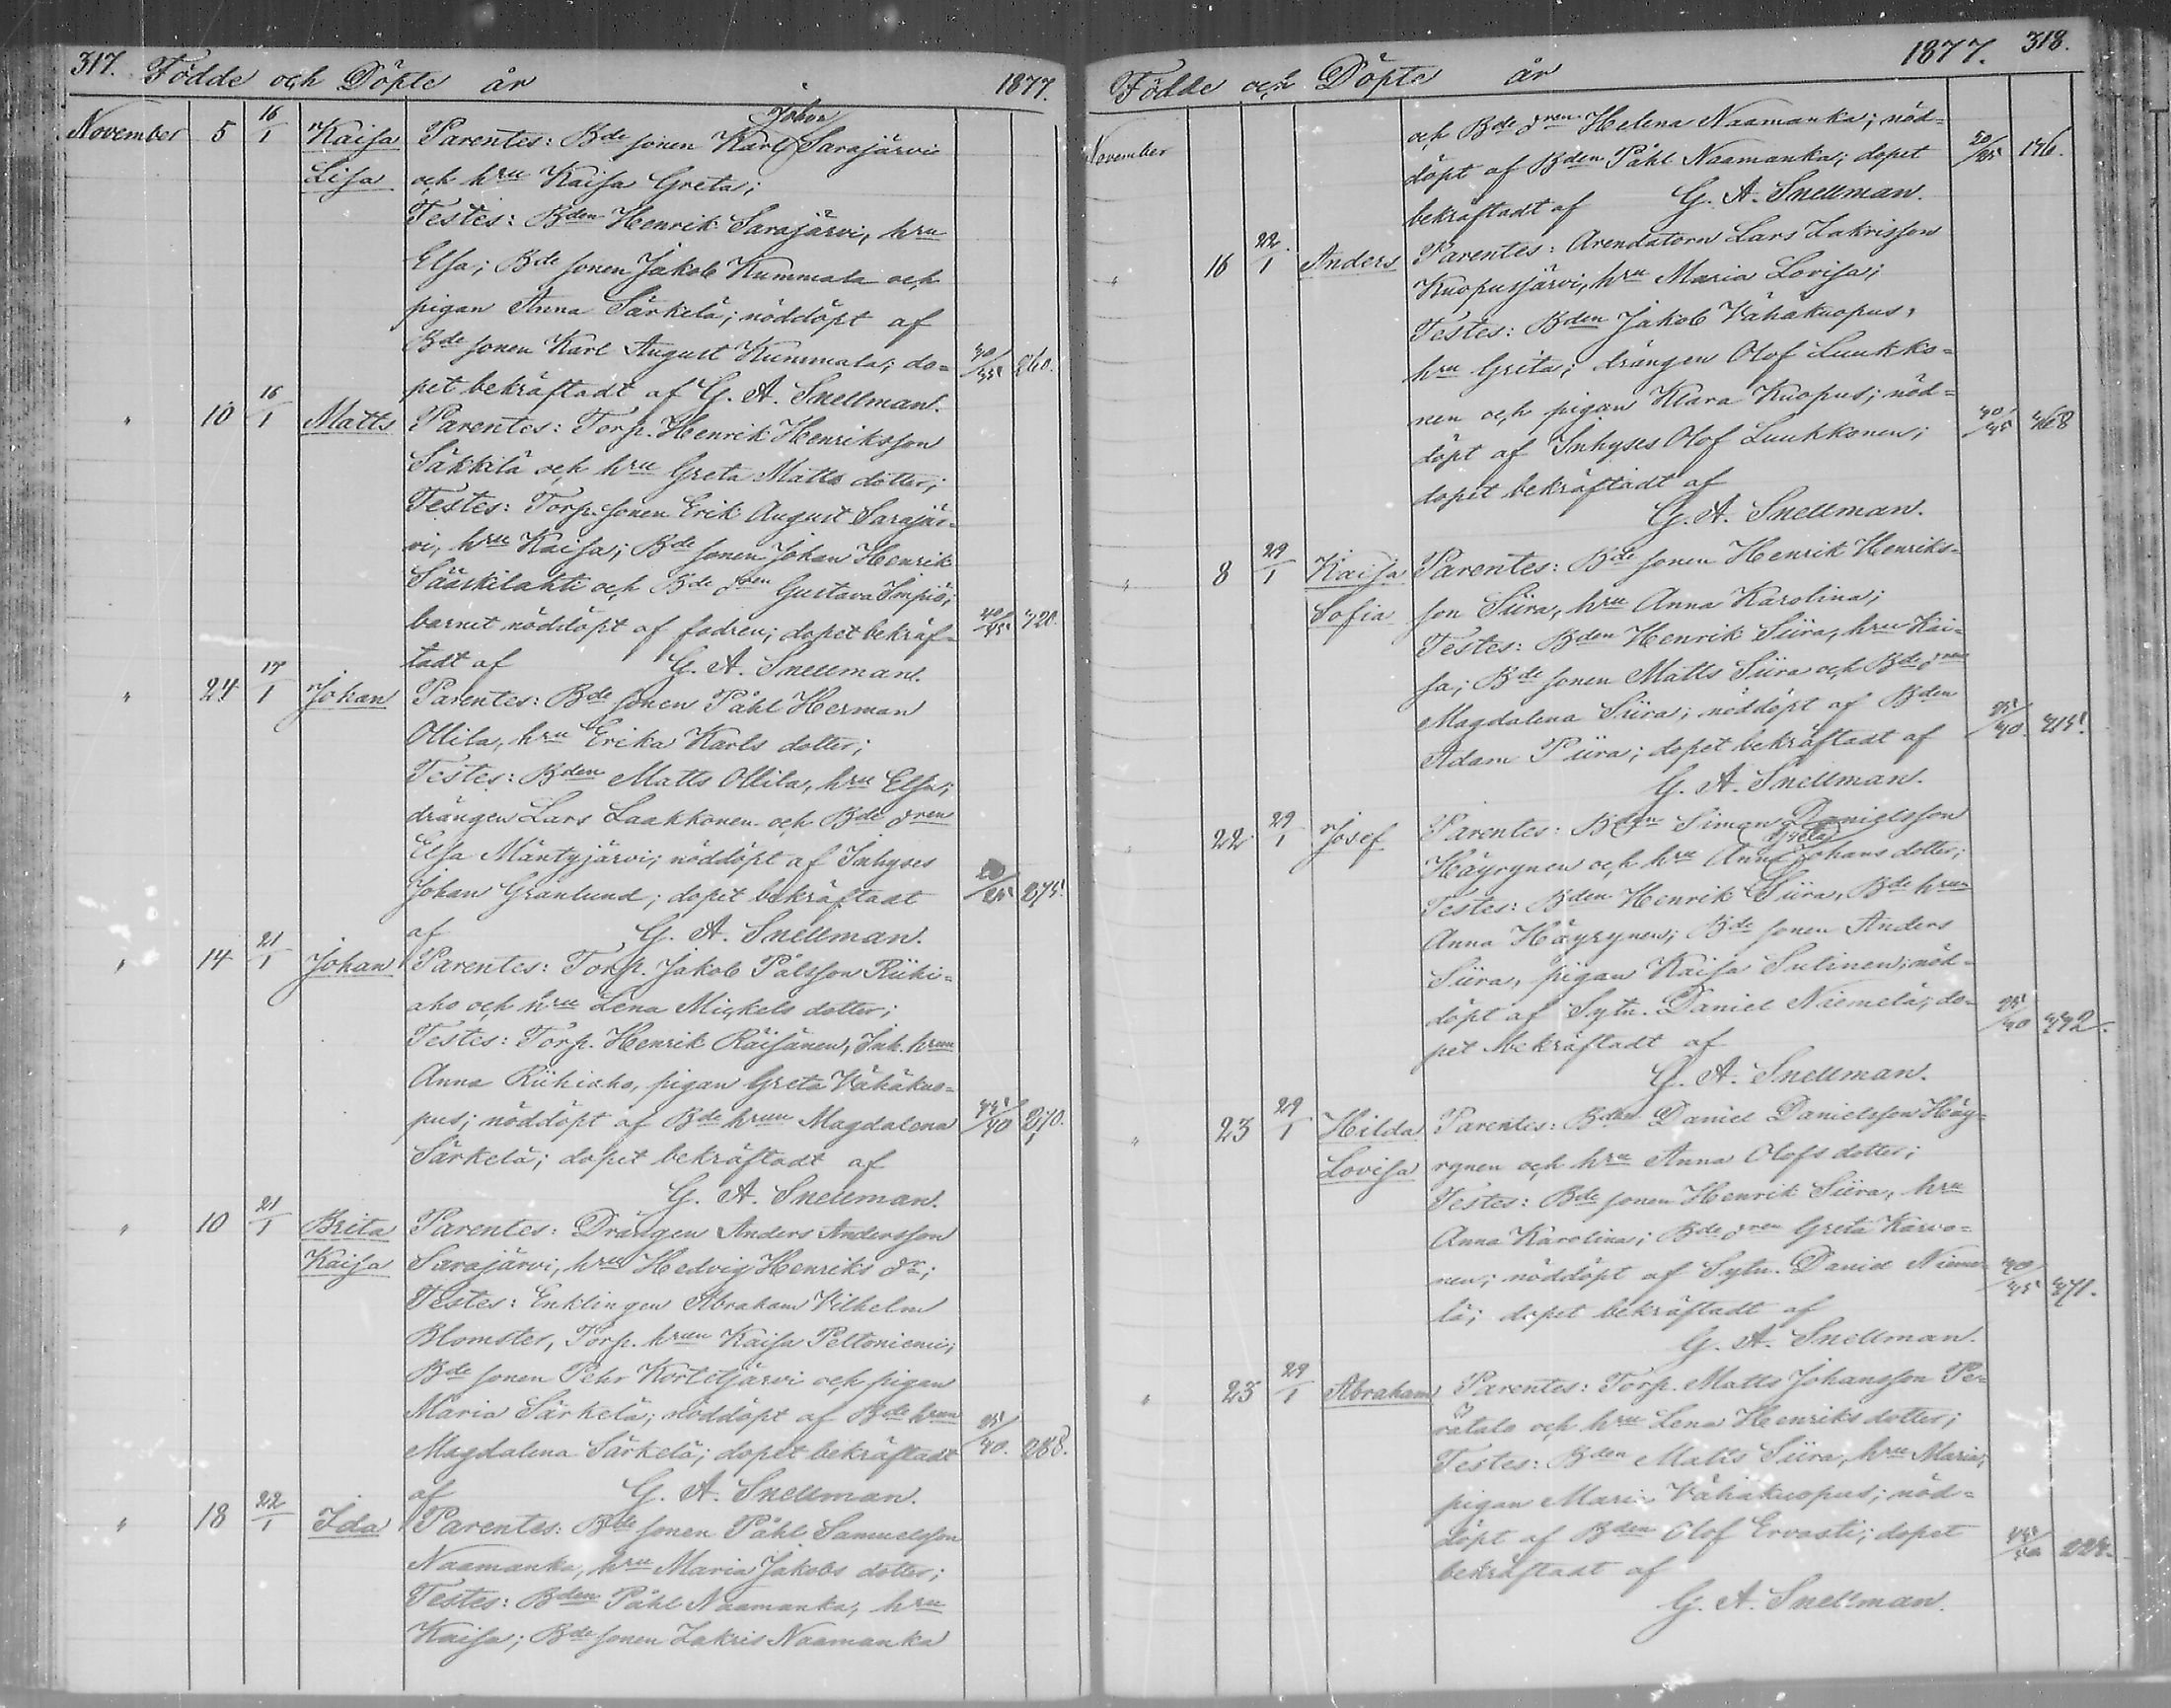 317. Födde och Döpte år 1877.
November 5 16/1 Kaisa Parentes: Bde sonen Karl Johan Sarajärvi
Lisa och hru Kaisa Greta;
Testes: Bden Henrik Sarajärvi, hru
Elsa; Bde sonen Jakob Kummala och
pigan Anna Särkelä; nöddöpt af
Bde sonen Karl August Kummala; do=
pet bekräftadt af G. A. Snellman. 30/35 260.
" 10 16/1 Matts Parentes: Torp. Henrik Henriksson
Säkkilä och hru Greta Matts dotter;
Testes: Torp. sonen Erik August Sarajär=
vi, hru Kaisa; Bde sonen Johan Henrik
Sääskilahti och Bde dren Gustava Impiö;
barnet nöddöpt af fadren; dopet bekräf= 40/45
tadt af G. A. Snellman.
" 24 17/1 Johan Parentes: Bde sonen Påhl Herman
Ollila, hru Erika Karls dotter;
Testes: Bden Matts Ollila, hru Elsa;
drängen Lars Laakkonen och Bde dren
Elsa Mäntyjärvi; nöddöpt af Inhyses
Johan Granlund; dopet bekräftadt 20/25 275.
af G. A. Snellman.
" 14 21/1 Johan Parentes: Torp. Jakob Pålsson Riihi=
aho och hru Lena Mickels dotter;
Testes: Torp. Henrik Räisänen, Inh. hrun
Anna Riihiaho, pigan Greta Vähäkuo=
pus; nöddöpt af Bde hrun Magdalena 35/40 270.
Särkelä; dopet bekräftadt af
G. A. Snellman.
" 10 21/1 Brita Parentes: Drängen Anders Andersson
Kaisa Sarajärvi, hru Hedvig Henriks dr;
Testes: Enklingen Abraham Vilhelm
Blomster, Torp. hrun Kaisa Peltoniemi;
Bde sonen Pehr Kortetjärvi och pigan
Maria Särkelä; nöddöpt af Bde hrun
Magdalena Särkelä; dopet bekräftadt 35/40. 288.
af G. A. Snellman.
" 18 22/1 Ida Parentes: Bde sonen Påhl Samuelsson
Naamanka, hru Maria Jakobs dotter;
Testes: Bden Påhl Naamanka, hru
Kaisa; Bde sonen Zakris Naamanka
Födde och Döpte år 1877. 318.
November och Bde dren Helena Naamanka; nöd=
döpt af Bden Påhl Naamanka; dopet 20/25 176.
bekräftadt af G. A. Snellman.
" 16 22/1 Anders Parentes: Arendatorn Lars Zakrisson
Kuopusjärvi, hru Maria Lovisa;
Testes: Bden Jakob Vähäkuopus,
hru Greta; drängen Olof Luukko=
nen och pigan Klara Kuopus; nöd=
döpt af Inhyses Olof Luukkonen; 40/45
dopet bekräftadt af
G. A. Snellman.
" 8 29/1 Kaisa Parentes: Bde sonen Henrik Henriks=
Sofia son Siira, hru Anna Karolina;
Testes: Bden Henrik Siira, hru Kai=
sa; Bde sonen Matts Siira och Bde dren
Magdalena Siira; nöddöpt af Bden
Adam Piira; dopet bekräftadt af
G. A. Snellman.
" 22 29/1 Josef Parentes: Bden Simon Danielsson
Häyrynen och hru Anna Greta Johans dotter;
Testes: Bden Henrik Siira, Bde hrun
Anna Häyrynen; Bde sonen Anders
Siira, pigan Kaisa Sutinen; nöd=
döpt af Sytn. Daniel Niemelä; do=
pet bekräftadt af
G. A. Snellman.
" 23 29/1 Hilda Parentes: Bden Daniel Danielsson Häy=
Lovisa rynen och hru Anna Olofs dotter;
Testes: Bde sonen Henrik Siira, hru
Anna Karolina; Bde dren Greta Karvo=
nen; nöddöpt af Sytn. Daniel Nieme=
lä; dopet bekräftadt af
G. A. Snellman.
" 23 29/1 Abraham Parentes: Torp. Matts Johansson Pe=
rätalo och hru Lena Henriks dotter;
Testes: Bden Matts Siira, hru Maria;
pigan Maria Vähäkuopus; nöd=
döpt af Bden Olof Ervasti; dopet
bekräftadt af
G. A. Snellman.